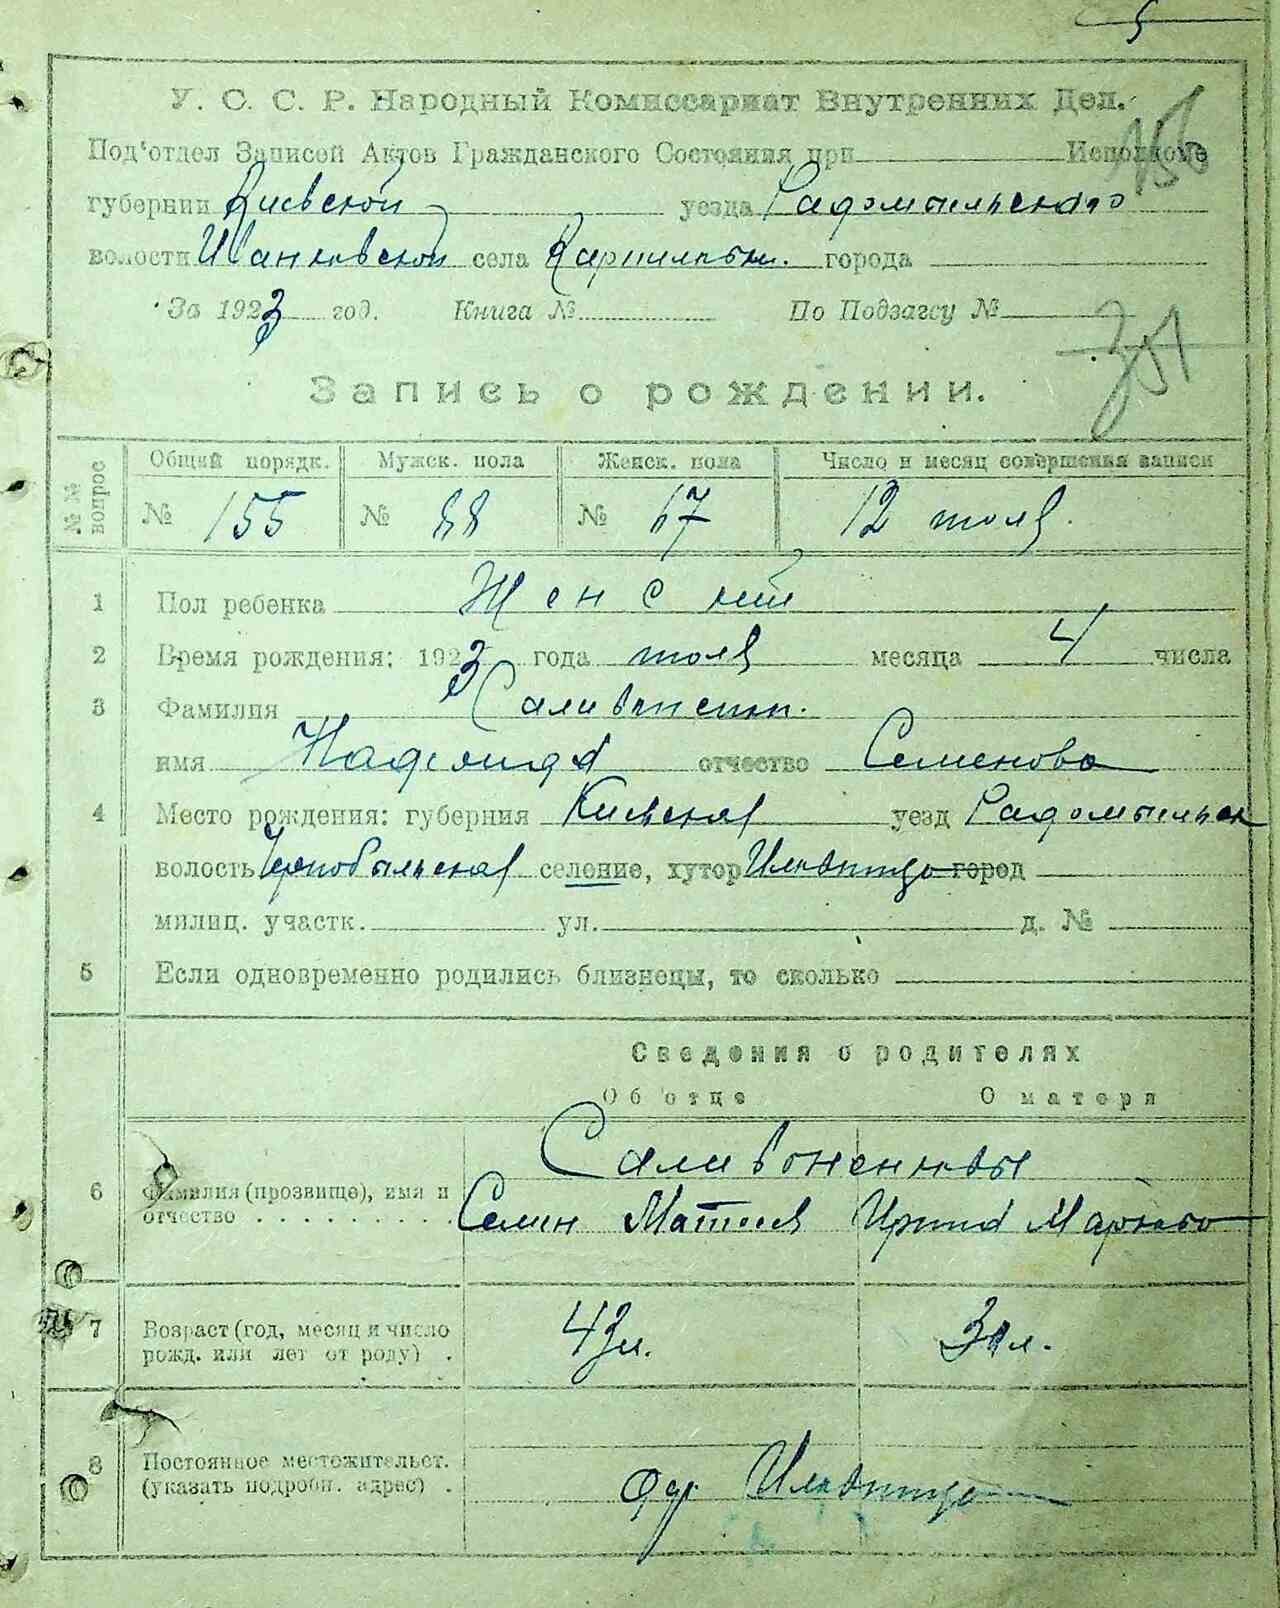 5
У. С. С. Р. Народный Комиссариат Внутренних Дел.
156
Под'отдел Записей Актов Гражданского Состояния при Исполкоме
губернии Киевской уезда Радомысльского
волости Иванковской села города
За 1923 год. Книга № По Подзагсу №
301
Запись о рождении.
№№ вопрос Общий порядк. Мужск. пола Женск. пола Число и месяц совершения записи
№ 155 № 88 № 67 12 июля.
1 Пол ребенка Женский
2 Время рождения: 1923 года июля месяца 4 числа
3 Фамилия
имя Надежда отчество Семенова
4 Место рождения: губерния Киевская уезд Радомысльск
волость Чернобыльская селение, хутор город
милиц. участк. ул. д. №
5 Если одновременно родились близнецы, то сколько
Сведения о родителях
Об отце О матери
Саливоненковы
6 Фамилия (прозвище), имя и
отчество Семен Матвеев Ирина Маркова
7 Возраст (год, месяц и число 43 л. л.
рожд. или лет от роду)
8 Постоянное местожительст.
(указать подробн. адрес)